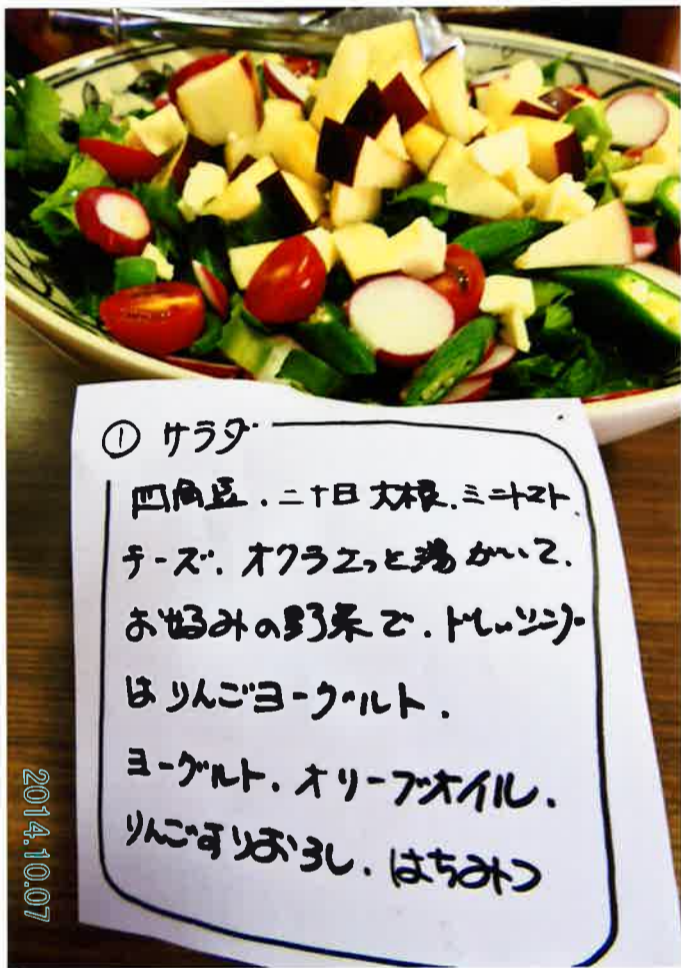 ① サラダ
四角豆．二十日大根．ミニトマト．
チーズ．オクラさっと湯がいて．
お好みの野菜で．ドレッシング
はりんごヨーグルト．
ヨーグルト．オリーブオイル．
りんごすりおろし．はちみつ
2014.10.07